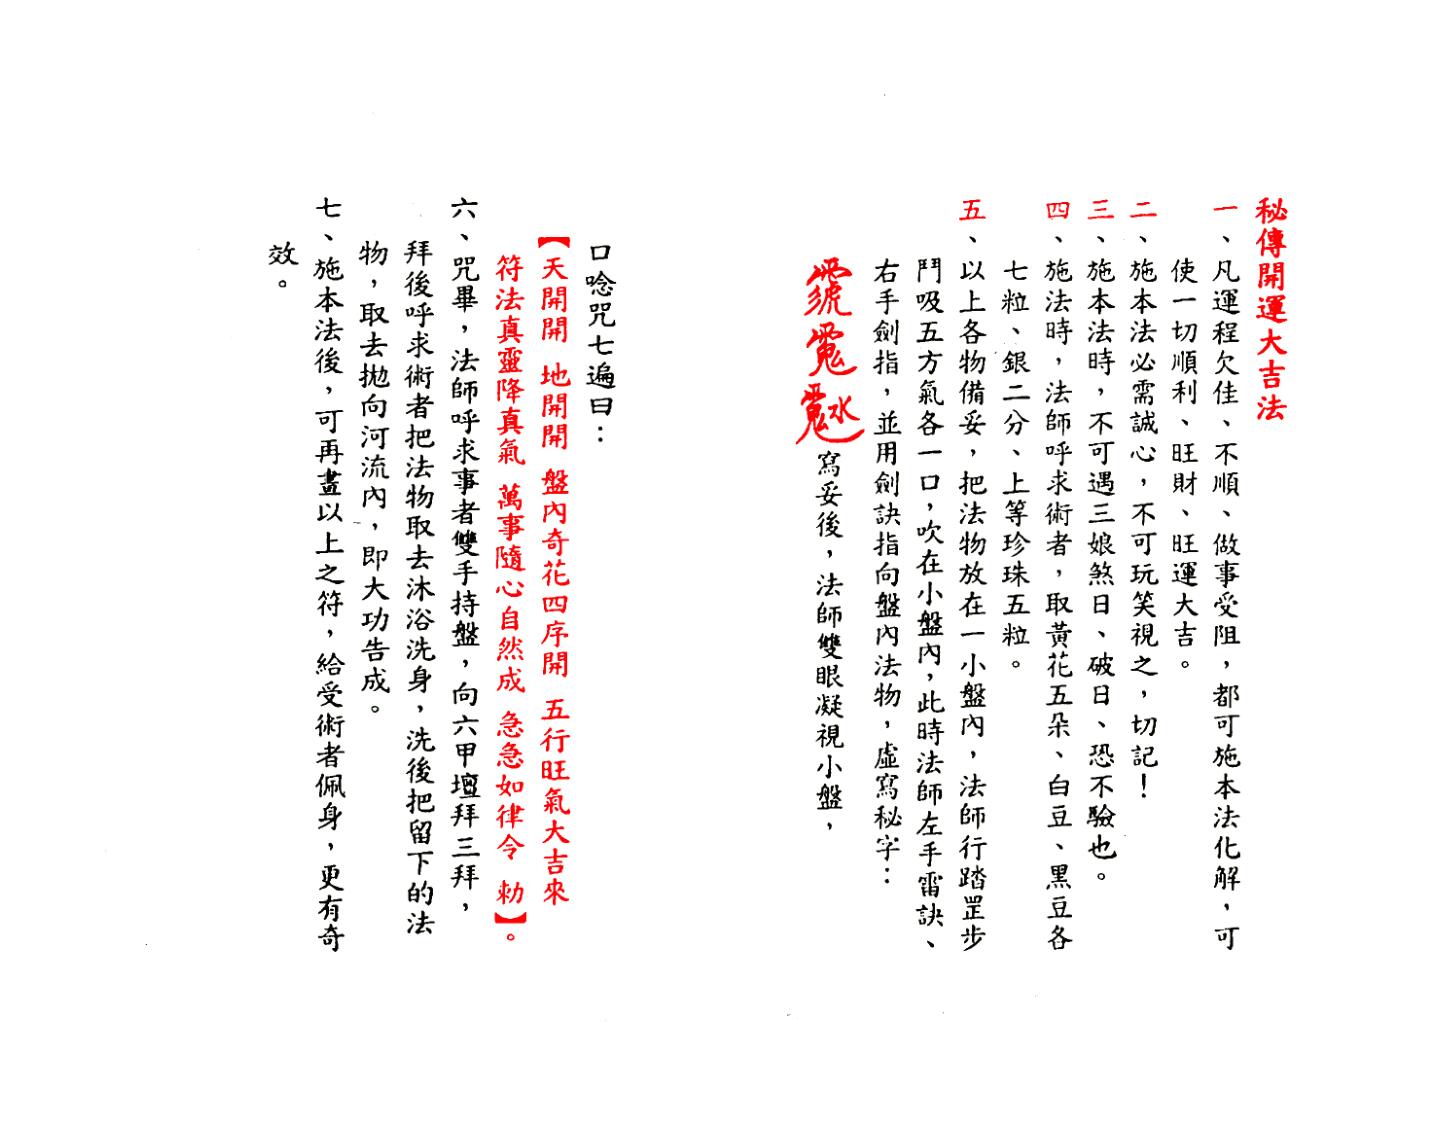 秘傳開運大吉法
一、凡運程欠佳、不順、做事受阻，都可施本法化解，可
使一切順利、旺財、旺運大吉。
二、施本法必需誠心，不可玩笑視之，切記！
三、施本法時，不可遇三娘煞日、破日、恐不驗也。
四、施法時，法師呼求術者，取黃花五朵、白豆、黑豆各
七粒、銀二分、上等珍珠五粒。
五、以上各物備妥，把法物放在一小盤內，法師行踏罡步
鬥吸五方氣各一口，吹在小盤內，此時法師左手雷訣、
右手劍指，並用劍訣指向盤內法物，虛寫秘字：
寫妥後，法師雙眼凝視小盤，
口唸咒七遍曰：
【天開開 地開開 盤內奇花四序開 五行旺氣大吉來
符法真靈降真氣 萬事隨心自然成 急急如律令 勅】。
六、咒畢，法師呼求事者雙手持盤，向六甲壇拜三拜，
拜後呼求術者把法物取去沐浴洗身，洗後把留下的法
物，取去拋向河流內，即大功告成。
七、施本法後，可再畫以上之符，給受術者佩身，更有奇
效。